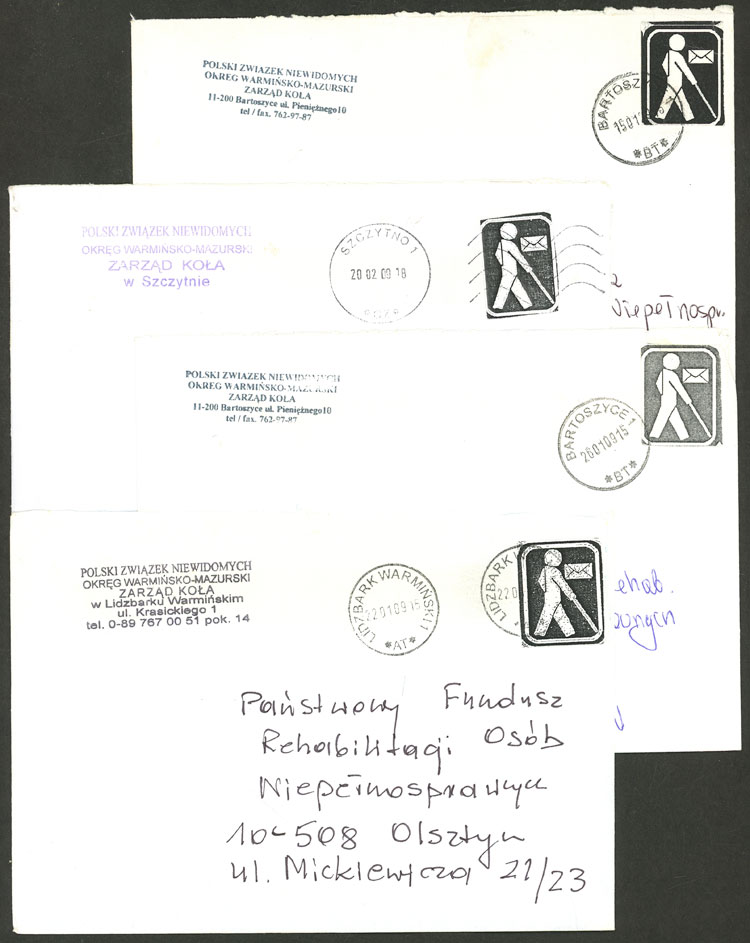 POLSKI ZWIĄZEK NIEWIDOMYCH
OKRĘG WARMIŃSKO-MAZURSKI
ZARZĄD KOŁA
11-200 Bartoszyce ul. Pieniężnego10
tel / fax. 762-97-87
BARTOSZY
*BT*
POLSKI ZWIĄZEK NIEWIDOMYCH
OKRĘG WARMIŃSKO-MAZURSKI
ZARZĄD KOŁA
w Szczytnie
SZCZYTNO 1
20 02 09 18
Niepełnospr.
POLSKI ZWIĄZEK NIEWIDOMYCH
OKRĘG WARMIŃSKO-MAZURSKI
ZARZĄD KOŁA
11-200 Bartoszyce ul. Pieniężnego10
tel / fax. 762-97-87
BARTOSZYCE 1
26010915
*BT*
ehab.
POLSKI ZWIĄZEK NIEWIDOMYCH
OKRĘG WARMIŃSKO-MAZURSKI
ZARZĄD KOŁA
w Lidzbarku Warmińskim
ul. Krasickiego 1
tel. 0-89 767 00 51 pok. 14
LIDZBARK WARMIŃSKI 1
22010915
*AT*
LIDZBARK
220
Państwowy Fundusz
Rehabilitacji Osób
Niepełnosprawnych
10-508 Olsztyn
ul. Mickiewicza 21/23